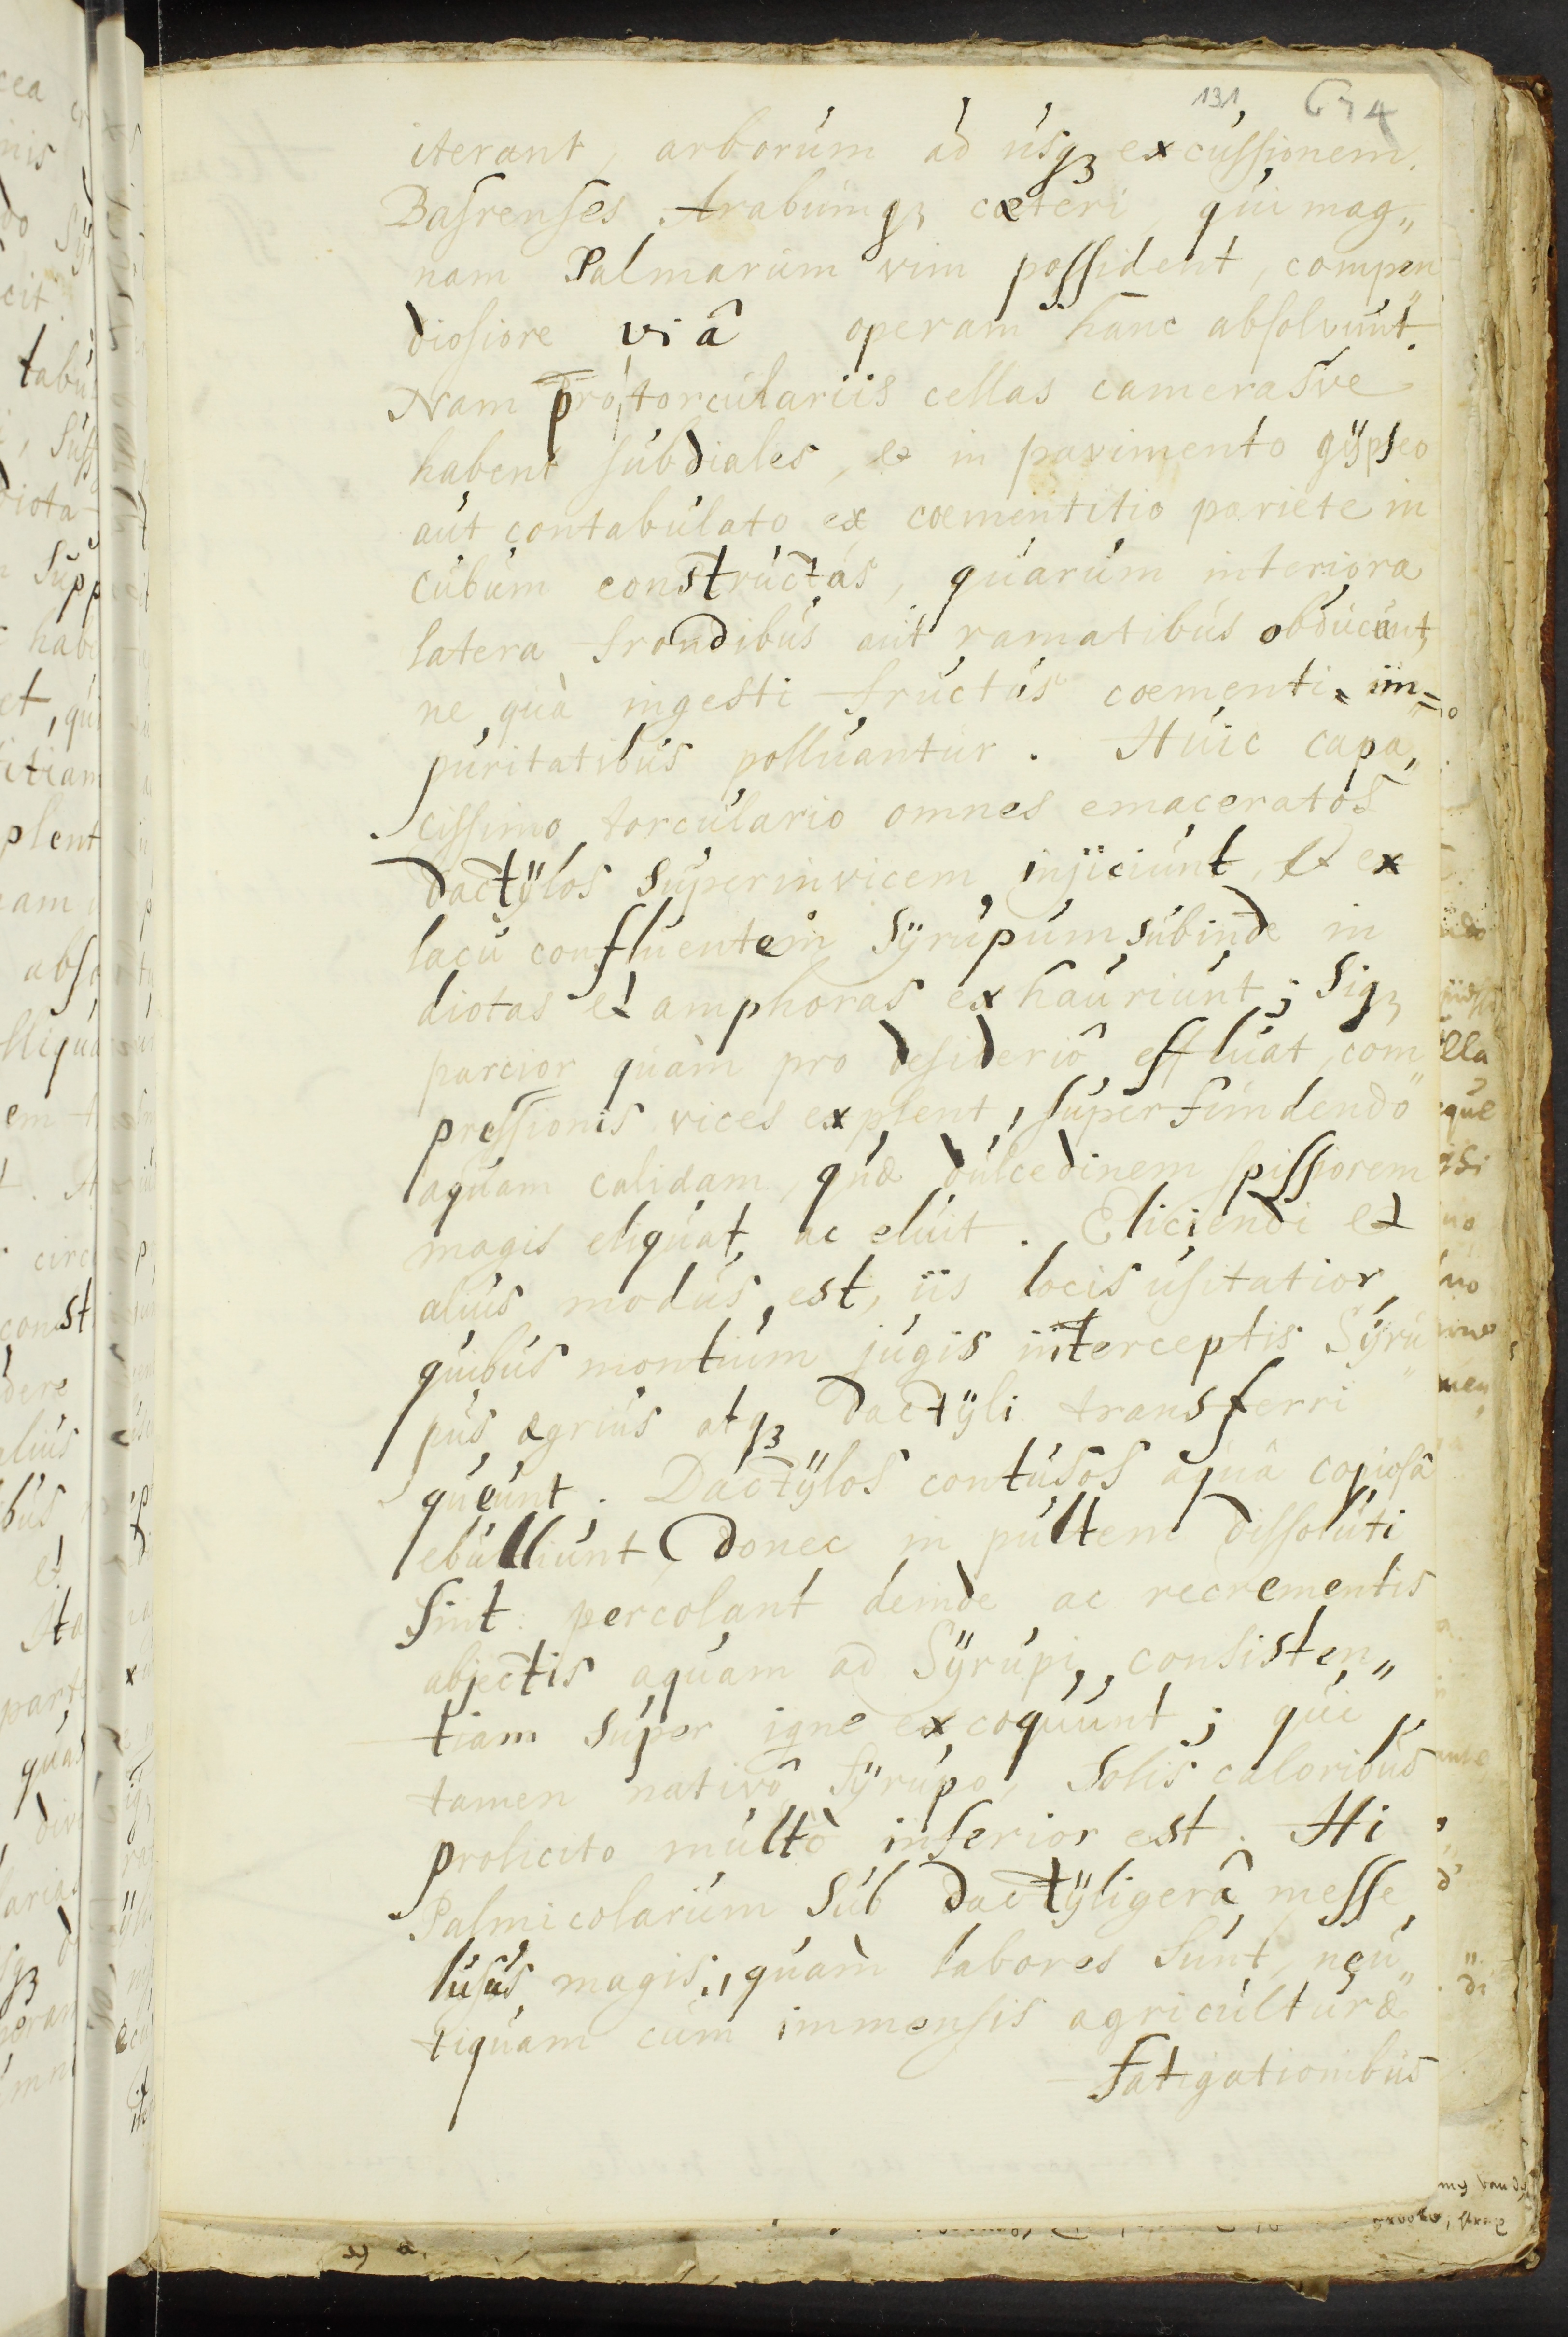 131 674
iterant, arborúm ad úsqꝫ excússionem.
Basrenses Arabúmqꝫ cæteri, qúi mag„
nam Palmarúm vim possident, compen„
diosiore viâ operam hanc absolvúnt.
Nam pro torcúlariis cellas camerasve
habent súbdiales, & in pavimento gÿpseo
aút contabúlato ex cœmentitio pariete in
cúbúm constrúctas, qúarúm interiora
latera frondibús aút ramatibús obdúcúnt,
ne qúà ingesti frúctús cœmenti im=
púritatibús pollúantur. Húic capa„
cissimo torcúlario omnes emaceratos
dactÿlos súperinvicem injiciúnt, & ex
lacú conflúentem Sÿrúpúm súbinde in
diotas et amphoras exhaúriúnt; Siqꝫ
parcior qúàm pro desideriô efflúat, com„
pressionis vices explent, súperfúndendo
aqúam calidam, qúæ dúlcedinem spissiorem
magis eliqúat, ac elúit. Eliciendi et
aliús modús est, iis locis úsitatior,
qúibús montiúm júgis interceptis Sÿrú„
pús ægriús atqꝫ dactÿli transferri
qúeúnt. Dactÿlos contúsos aqúâ copiosâ
ebúlliúnt, donec in púltem dissolúti
sint: percolant deinde ac recrementis
abjectis aqúam ad Sÿrúpi, consisten„
tiam súper igne excoqúúnt; qúi
tamen nativô Sÿrúpo, Solis caloribús
prolicito múltò inferior est. Hi
Palmicolarúm súb dactÿligerâ messe
lúsús magis, qúàm labores súnt, neú„
tiqúam cúm immensis agricúltúræ
fatigationibús